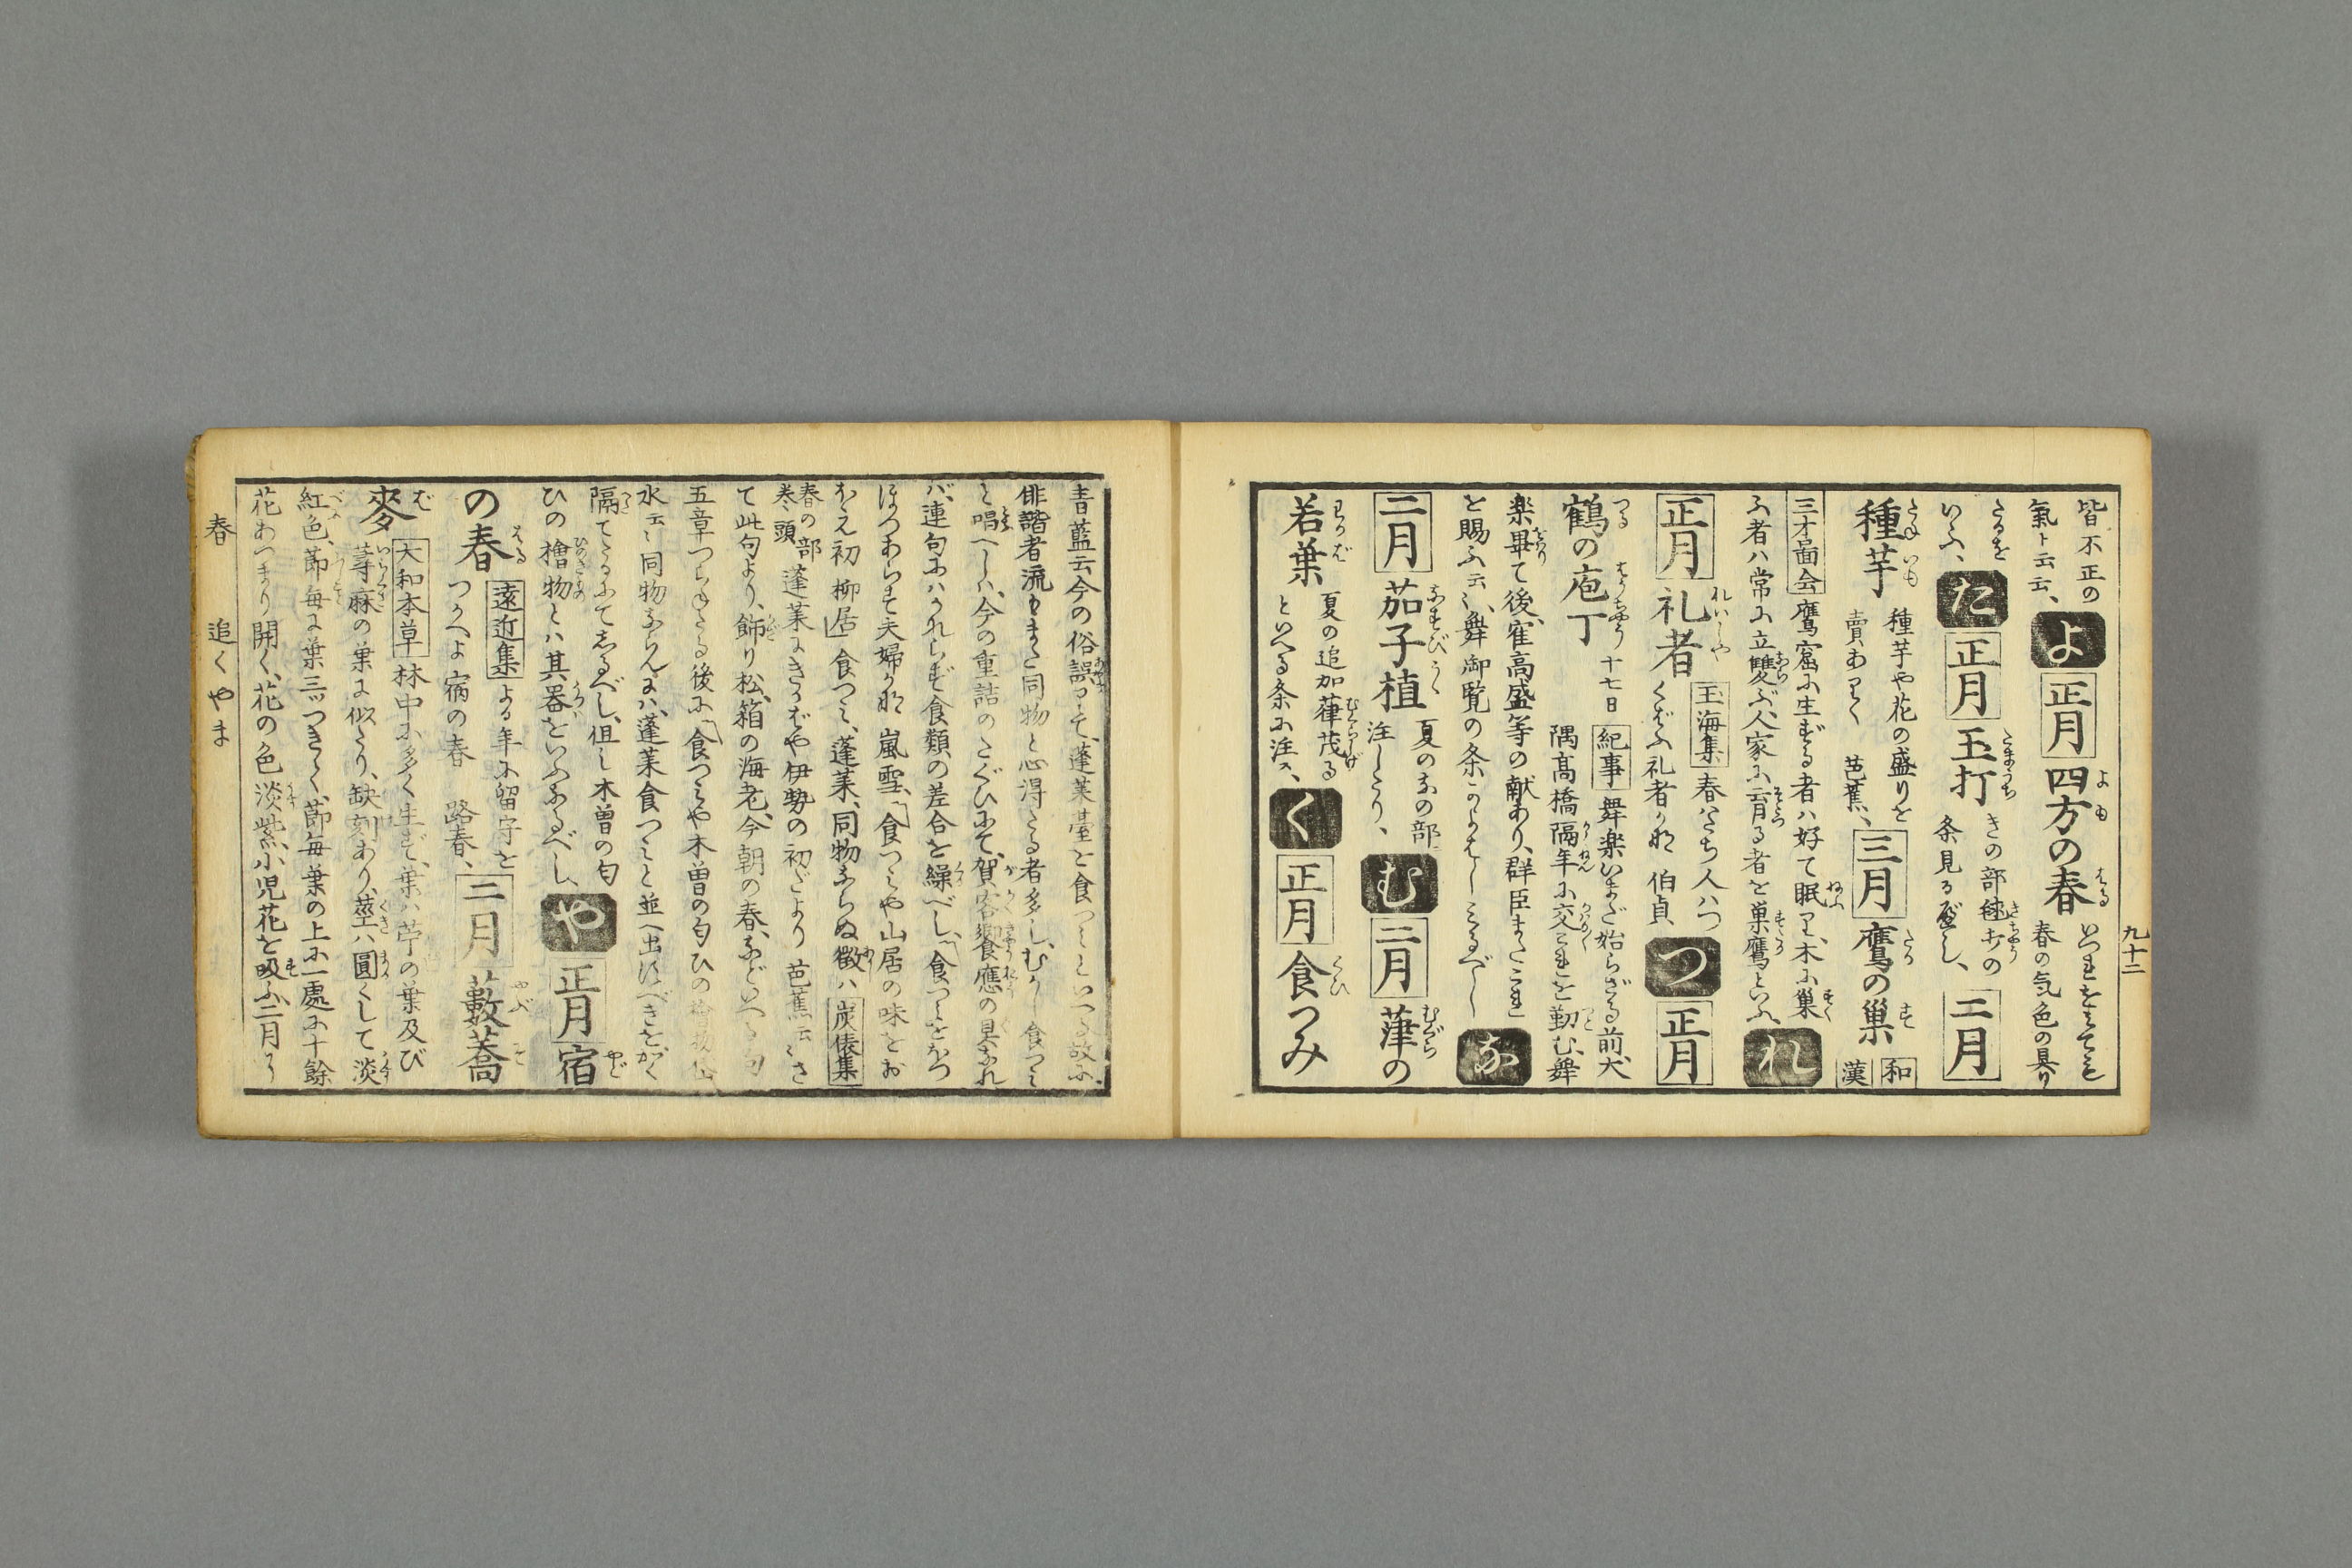 九十二
皆不正の
氣ト云云、
よ
正月
四方の春
いつれをさしても
春の気色の具り
たるを
いふ、
た
正月
玉打
きの部毬打の
条見る〻べし、
二月
種芋
種芋や花の盛りを
賣ありく
芭蕉、
三月
鷹の巣
和
漢
三才圖会
鷹窟に生ずる者ハ好て眠り、木に巣く
ふ者ハ常に立雙ぶ、人家に育る者を巣鷹といふ、
れ
正月
礼者
玉海集
春はたち人はつ
くばふ礼者かな
伯貞、
つ
正月
鶴の庖丁
十七日
紀事
舞楽いまだ始らざる前犬
隅髙橋隔年に交これを勤む、舞
楽畢て後、窄高盛等の献あり、群臣またこれ
を賜ふ云〻、舞御覧の条
な
二月
茄子植
夏のなの部
注したり、
む
二月
葎の
若葉
夏の追加葎茂る
といへる条に注ス、
く
正月
食つみ
青藍云今の俗誤りて、蓬莱臺を食つミといへる故に、
俳諧者流もまた同物と心得たる者多し、むかし食つミ
と唱へしハ、今の重詰のたぐひにて、賀客饗應の具なれ
バ、連句にハかれらず食類の差合を繰べし、食つミをねつ
ほつあらそ夫婦かな
嵐雪、
食つミや山居の味をお
ぼえ初
柳居
食つミ、蓬莱、同物ならぬ徴ハ
炭俵集
春の部
巻頭
蓬莱にきかばや伊勢の初だより
芭蕉云〻さ
て此句より、飾り松、箱の海老、今朝の春、などいへる句
五章つらねたる後に、食つミや木曽の匂ひの
水云〻同物ならんにハ、蓬莱食つミと並べ出すべきを、かく
隔てたるにてしるべし、但し木曽の匂
ひの檜物とハ其器をいふなるべし、
や
正月
宿
の春
遠近集
よる年に留守を
つかへよ宿の春
路春、
三月
藪蕎
麥
大和本草
林中に多く生ず、葉ハ苧の葉及び
蕁麻の葉に似たり、缺刻あり、莖ハ圓くして淡
紅色、節毎に葉三ツつきて、節毎葉の上に一處に十餘
花あつまり開く、花の色淡紫、小児花を吸ふ、二月か
春
追くやま